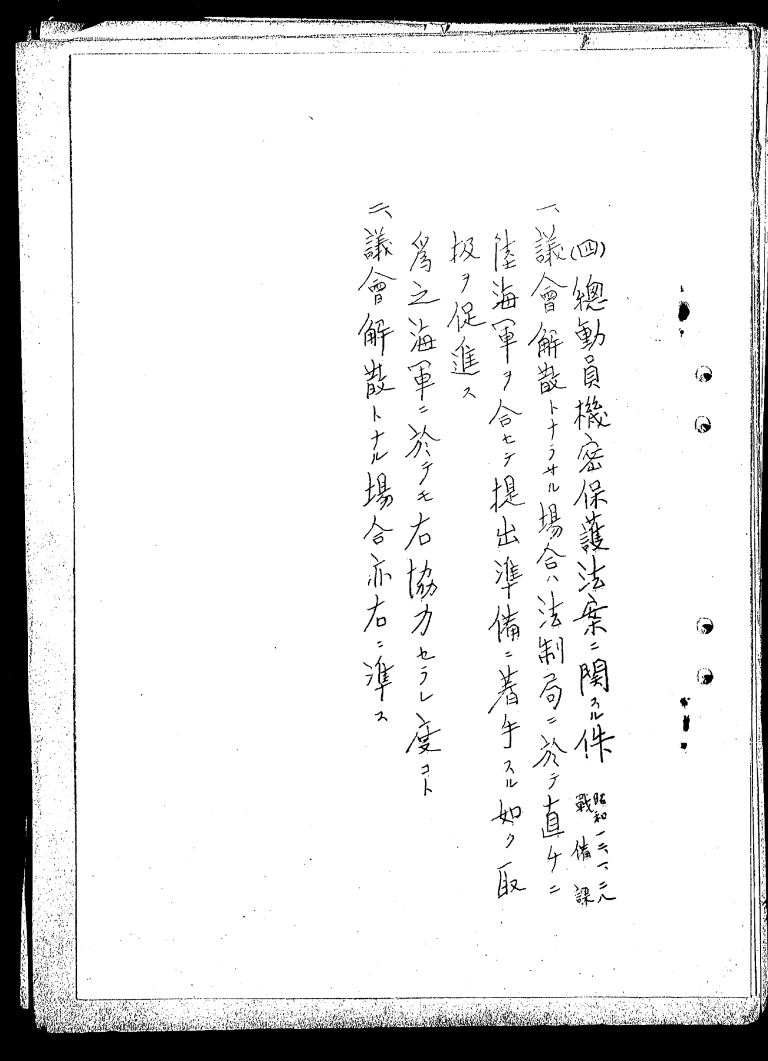 (四)總動員機密保護法案ニ関スル件
昭和一二、一、二八
戰備課
一、議會解散トナラサル場合ハ法制局ニ於テ直チニ
陸海軍ヲ合セテ提出準備ニ著手スル如ク取
扱ヲ促進ス
爲之海軍ニ於テモ右協力セラレ度コト
二、議會解散トナル場合亦右ニ準ス